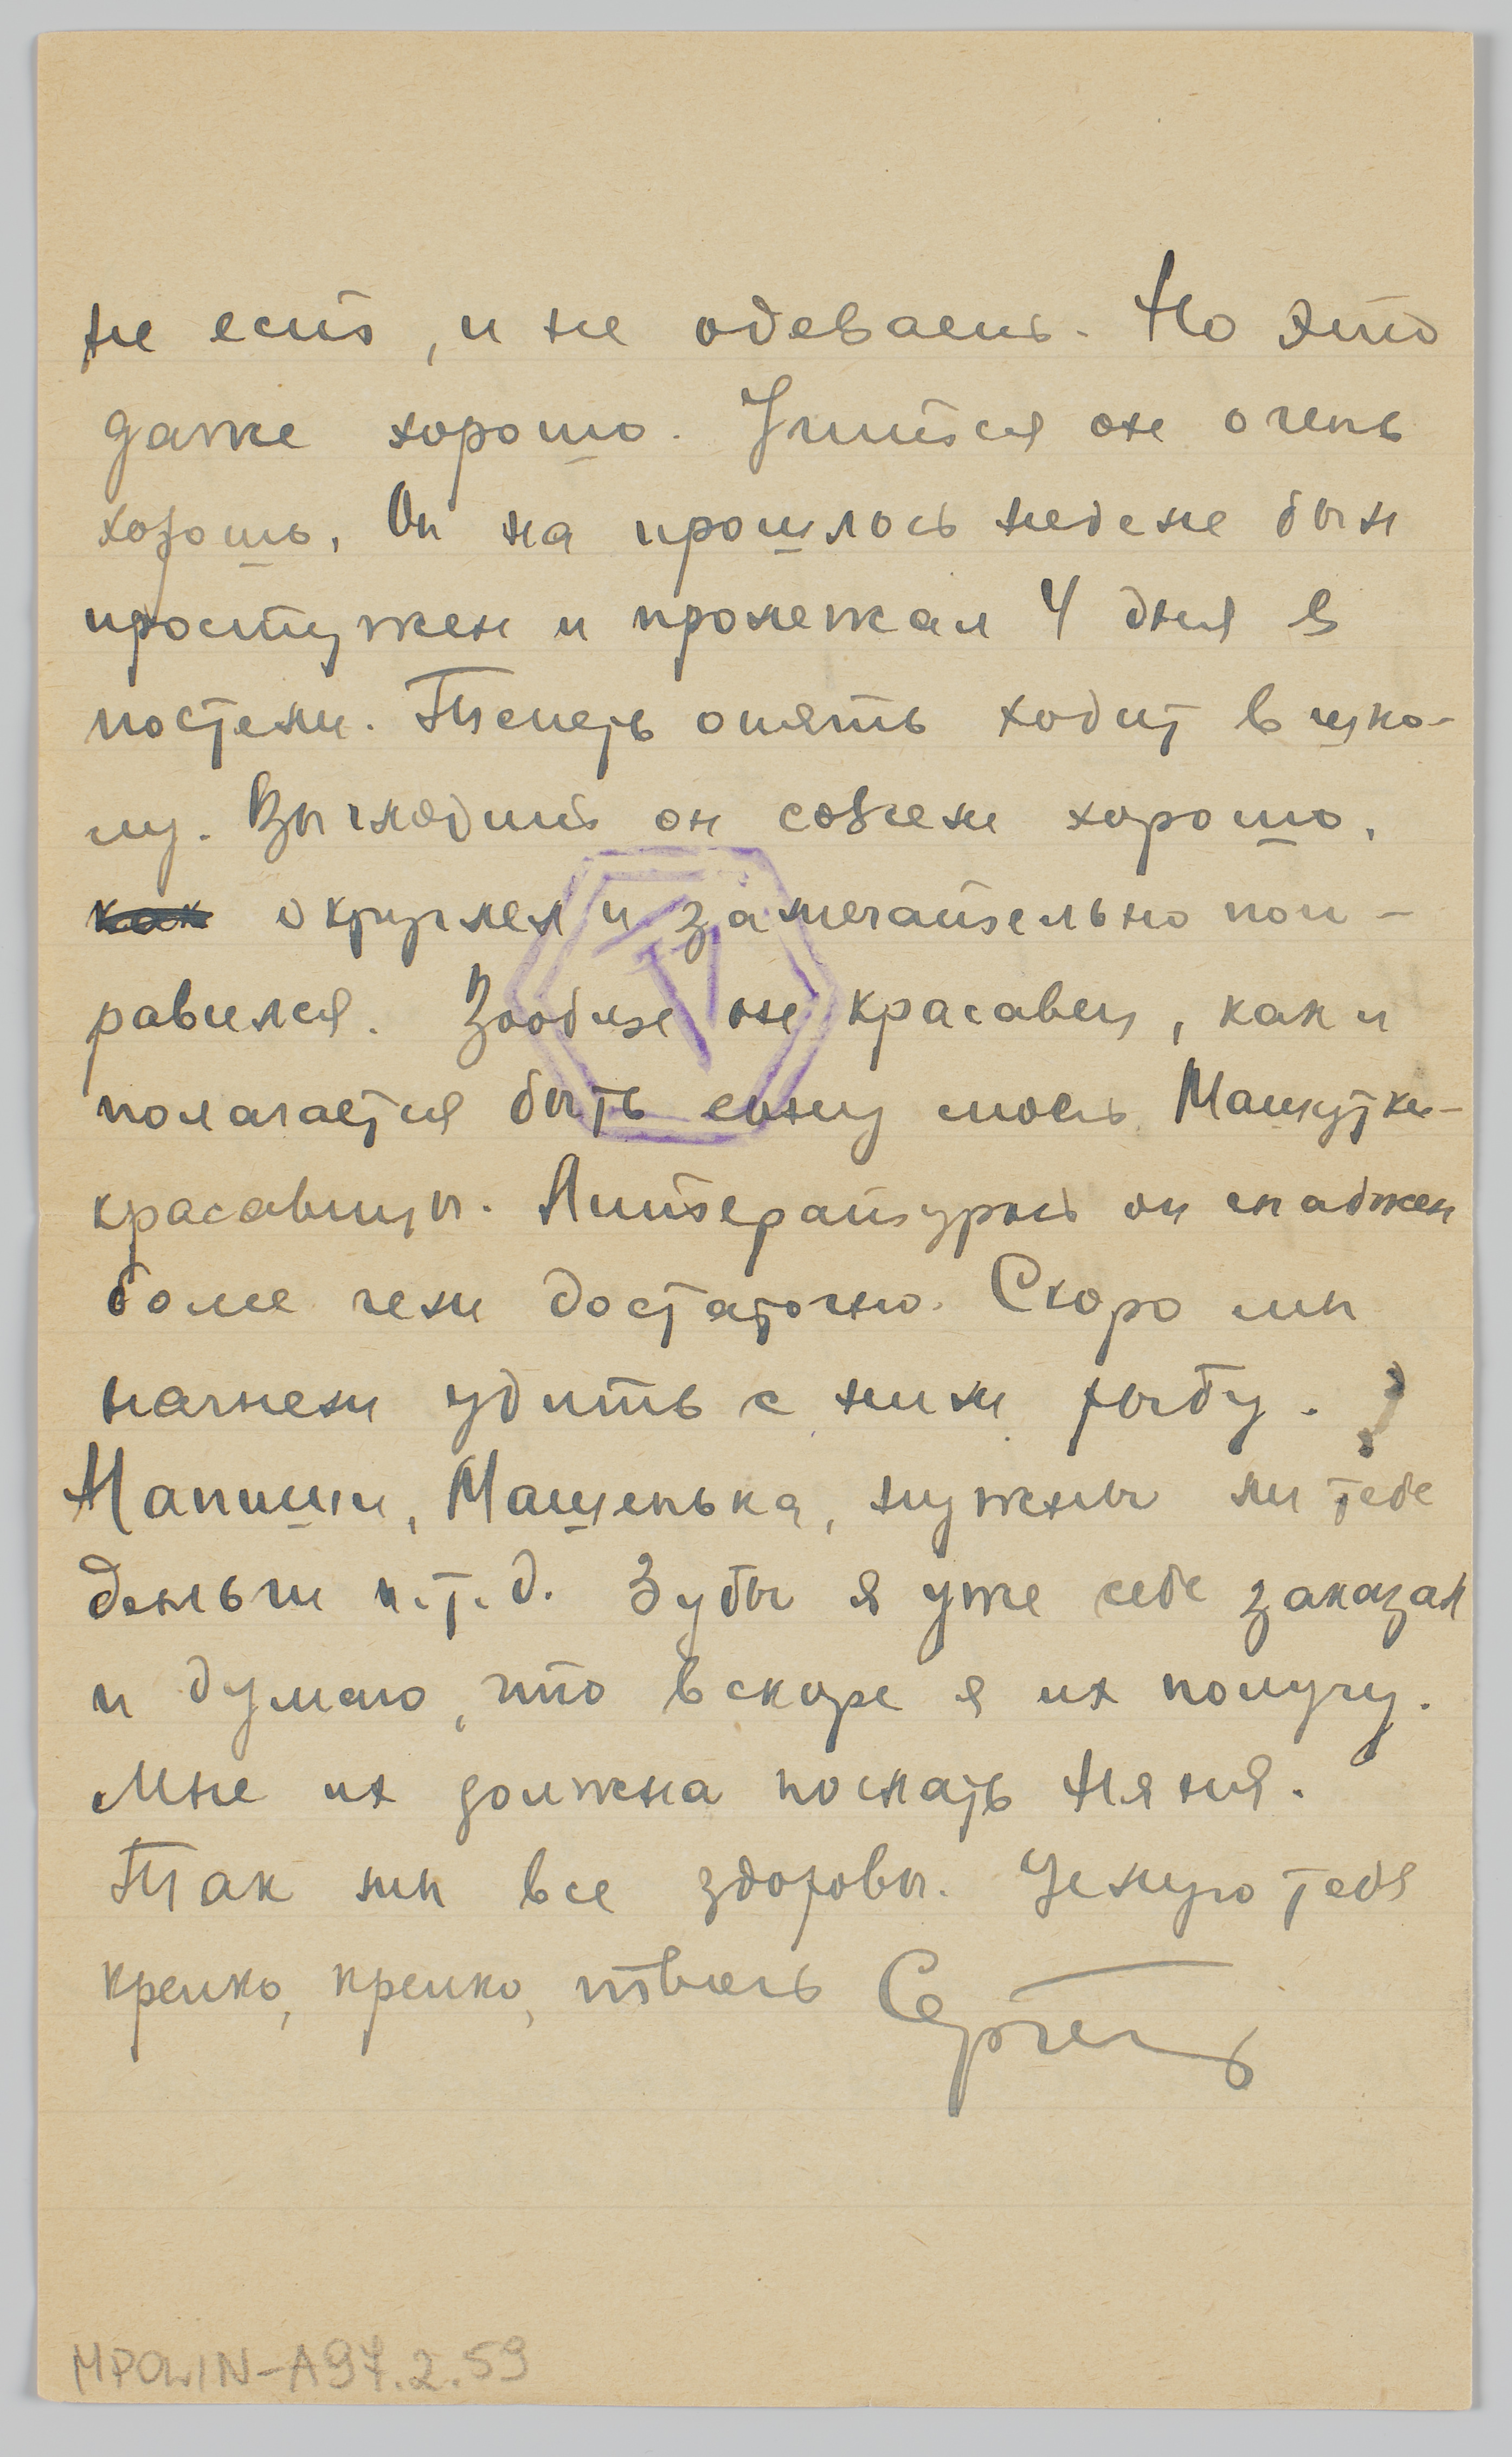 не естъ, и не одеваешь. Но это
даже хорошо. Учится он очень
хорошо. Он на прошлой неделе был
простужен и пролежал 4 дня в
постели. Теперь опять ходит в шко-
лу. Выглядит он совсем хорошо,
как округлел и замечательно поп-
равился. Вообще он красавец, как и
полагается быть сыну моей Машутки-
красавицы. Литературой он снабжен
более чем достаточно. Скоро мы
начнем удить с ним рыбу.
Напиши, Машенька, нужны ли тебе
деньги и.т.д. Зубы я уже себе заказал
и думаю, что вскоре я их получу.
Мне их должна послать няня.
Так мы все здоровы. Целую тебя
крепко, крепко, твой Сергей
MPOLIN-A97.2.59